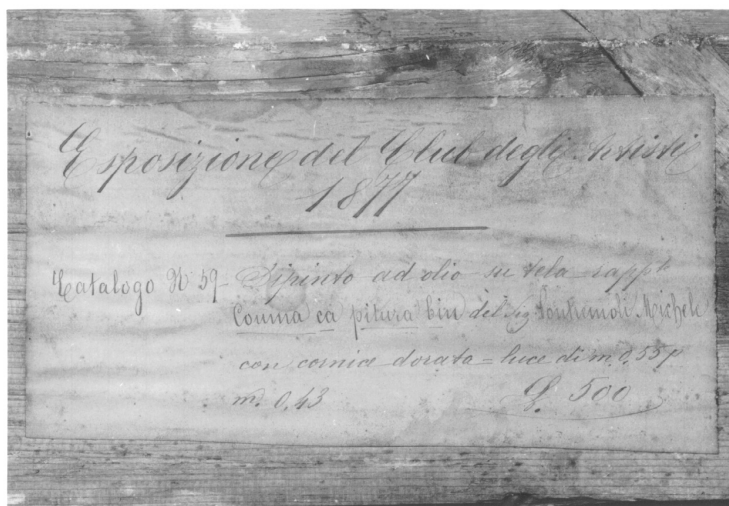 Esposizione del Club degli Artisti
1877
Catalogo N 59 - Dipinto ad olio su tela rappte
Couma ca pitura bin del Sig Pontremoli Michele
con cornice dorata = luce di m 0,55 p
m. 0,43 L. 500